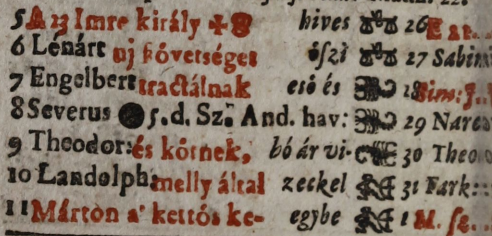 5 A 23 Imre király hives 26
6 Lénárt uj követséget öszi 27 Sabin
7 Engelbert tractálnak esö és 28 Sim: J
8 Severus 5. d. Sz: And. hav: 29
9 Theodor: és kötnek, bó ár vi- 30 Theo
10 Landolph: melly által zeckel 31 Fark:
11 Márton a' kettős ke- egybe 1 M. ſe